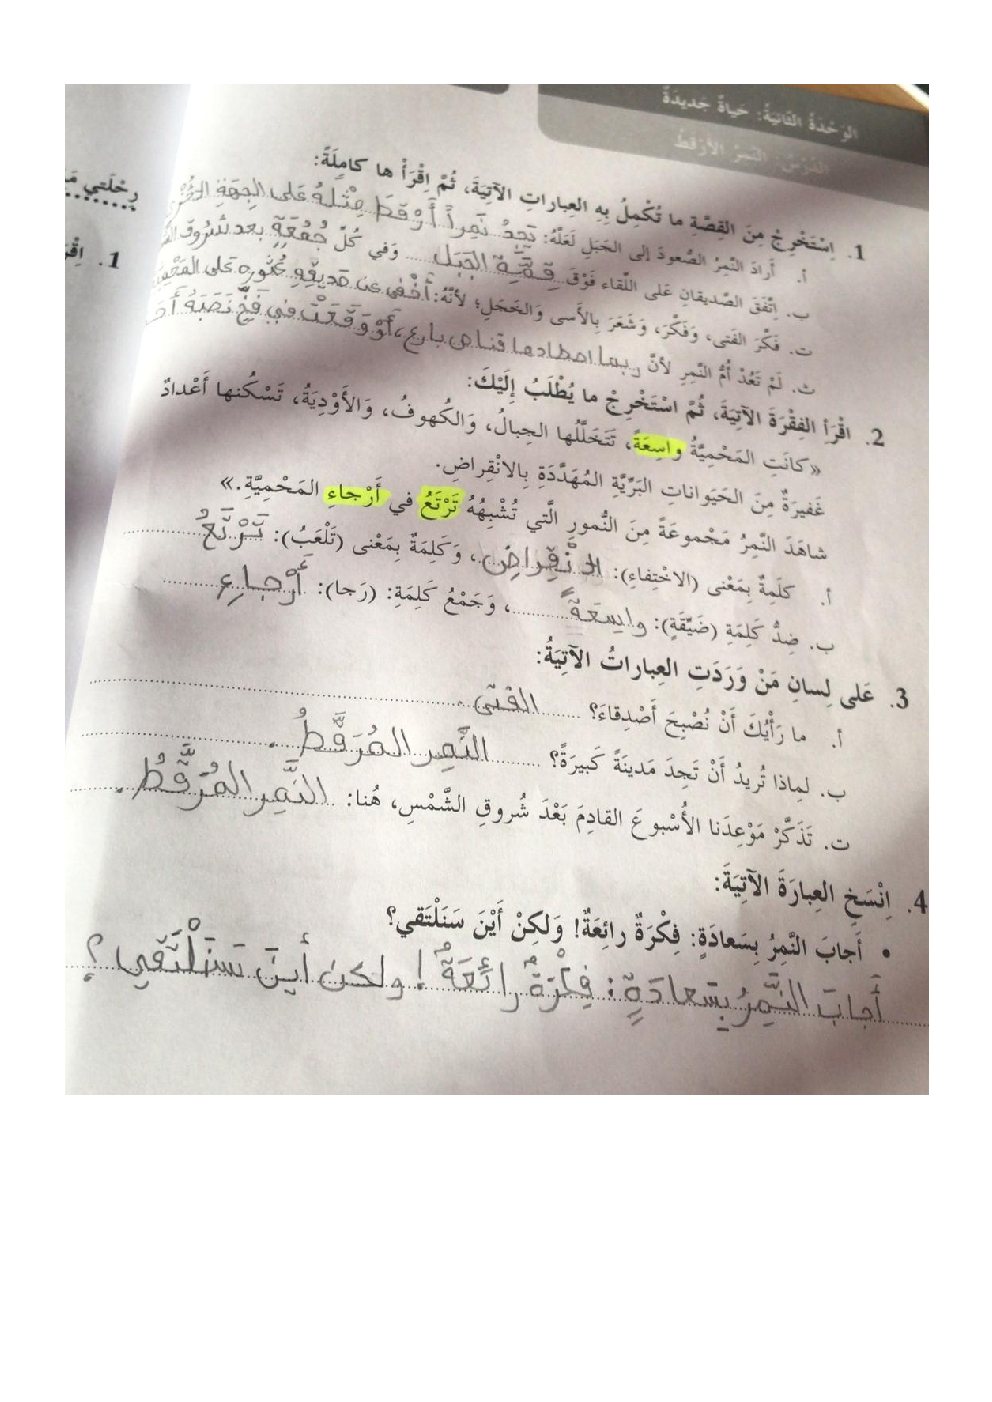 الوَحْدَةُ الثّانِيَةُ: حَياةٌ جَديدَةٌ
الدَّرْسُ: النَّمِرُ الأَرْقَطُ
1. اِسْتَخْرِجْ مِنَ القِصَّةِ ما تُكْمِلُ بِهِ العِباراتِ الآتِيَةَ، ثُمَّ اِقْرَأْ ها كامِلَةً:
أ. أَرادَ النَّمِرُ الصُّعودَ إلى الجَبَلِ لَعَلَّهُ: يَجِدُ نَمِراً أَرْقَطَ مِثْلَهُ عَلى الجِهَةِ
ب. اِتَّفَقَ الصَّديقانِ عَلى اللِّقاء فَوْقَ قِمَّةِ الجَبَلِ وَفي كُلِّ جُمُعَةٍ بعد شروق
ت. فَكَّرَ الفَتى، وَفَكَّرَ، وَشَعَرَ بِالأَسى وَالخَجَلِ؛ لأَنَّهُ: أَخْفى عن صديقه عثوره على
ث. لَمْ تَعُدْ أُمُّ النَّمِرِ لأنّ ربما اصطادها قناص بارع، أَوْ وَقَعَتْ في فَخٍّ نَصَبَهُ
2. اقْرَأ الفِقْرَةَ الآتِيَةَ، ثُمَّ اسْتَخْرِجْ ما يُطْلَبُ إلَيْكَ:
«كانَتِ المَحْمِيَّةُ واسِعَةً، تَتَخَلَّلُها الجِبالُ، وَالكُهوفُ، وَالأَوْدِيَةُ، تَسْكُنها أَعْدادٌ
غَفيرَةٌ مِنَ الحَيَواناتِ البَرِّيَّةِ المُهَدَّدَةِ بِالانْقِراضِ.
شاهَدَ النَّمِرُ مَجْموعَةً مِنَ النُّمورِ الَّتي تُشْبِهُهُ تَرْتَعُ في أَرْجاءِ المَحْمِيَّةِ.»
أ. كَلِمَةٌ بِمَعْنى (الاخْتِفاءِ): الانْقِراضِ، وَكَلِمَةٌ بِمَعْنى (تَلْعَبُ): تَرْتَعُ
ب. ضِدُّ كَلِمَةِ (ضَيِّقَةٍ): واسِعَةً، وَجَمْعُ كَلِمَةِ: (رَجا): أَرْجاءِ
3. عَلى لِسانِ مَنْ وَرَدَتِ العِباراتُ الآتِيَةُ:
أ. ما رَأْيُكَ أَنْ نُصْبِحَ أَصْدِقاءَ؟ الفَتى.
ب. لِماذا تُريدُ أَنْ تَجِدَ مَدينَةً كَبيرَةً؟ النَّمِر المُرَقَّطُ.
ت. تَذَكَّرْ مَوْعِدَنا الأُسْبوعَ القادِمَ بَعْدَ شُروقِ الشَّمْسِ، هُنا: النَّمِر المُرَقَّطُ.
4. اِنْسَخِ العِبارَةَ الآتِيَةَ:
• أَجابَ النَّمِرُ بِسَعادَةٍ: فِكْرَةٌ رائِعَةٌ! وَلكِنْ أَيْنَ سَنَلْتَقي؟
أَجابَ النَّمِرُ بِسَعادَةٍ: فِكْرَةٌ رائِعَةٌ! ولكن أَينَ سَنَلْتَقي؟
رِحْلَتي
1. اِقْرَ